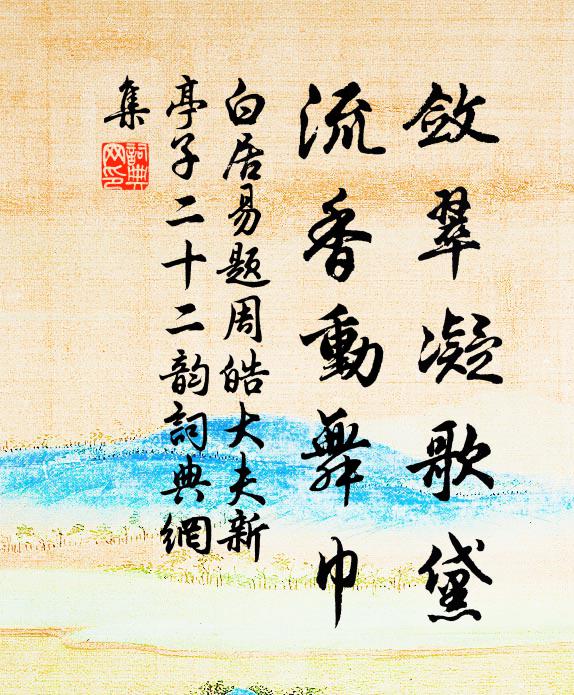 斂翠凝歌黛
流香動舞巾
白居易題周皓大夫新
亭子二十二韵詞典網
集
詞典網印